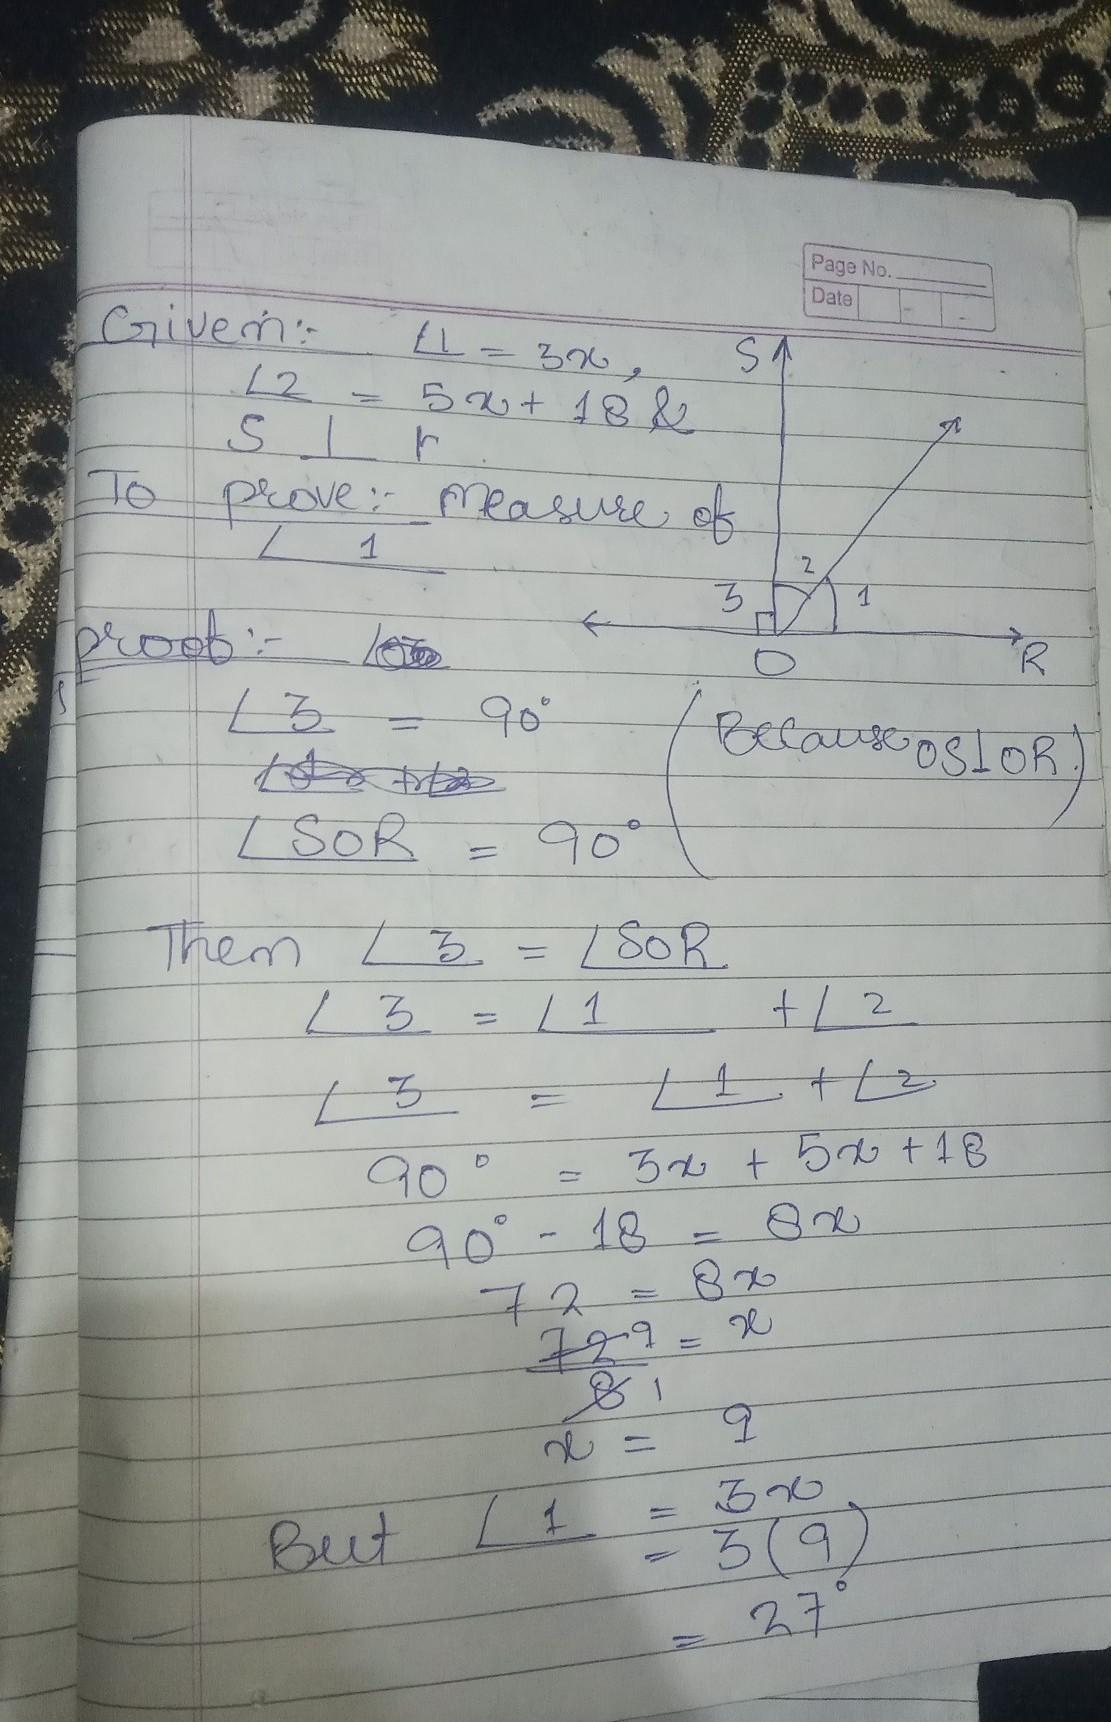 Page No.
Date
Given:- ∠1 = 3x,
∠2 = 5x + 18 &
S ⊥ r
To prove:- Measure of
∠1
S
2
3
1
O
R
proof:-
∠3 = 90°
(Because OS⊥OR.)
∠SOR = 90°
Then ∠3 = ∠SOR
∠3 = ∠1 + ∠2
∠3 = ∠1 + ∠2
90° = 3x + 5x + 18
90° - 18 = 8x
72 = 8x
72 9 = x
8 1
x = 9
But ∠1 = 3x
= 3(9)
= 27°